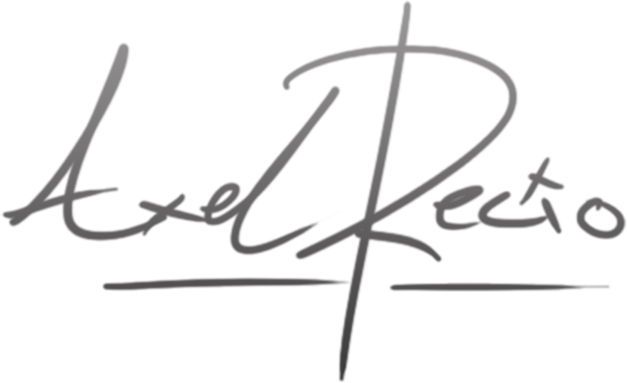 Axel Recio